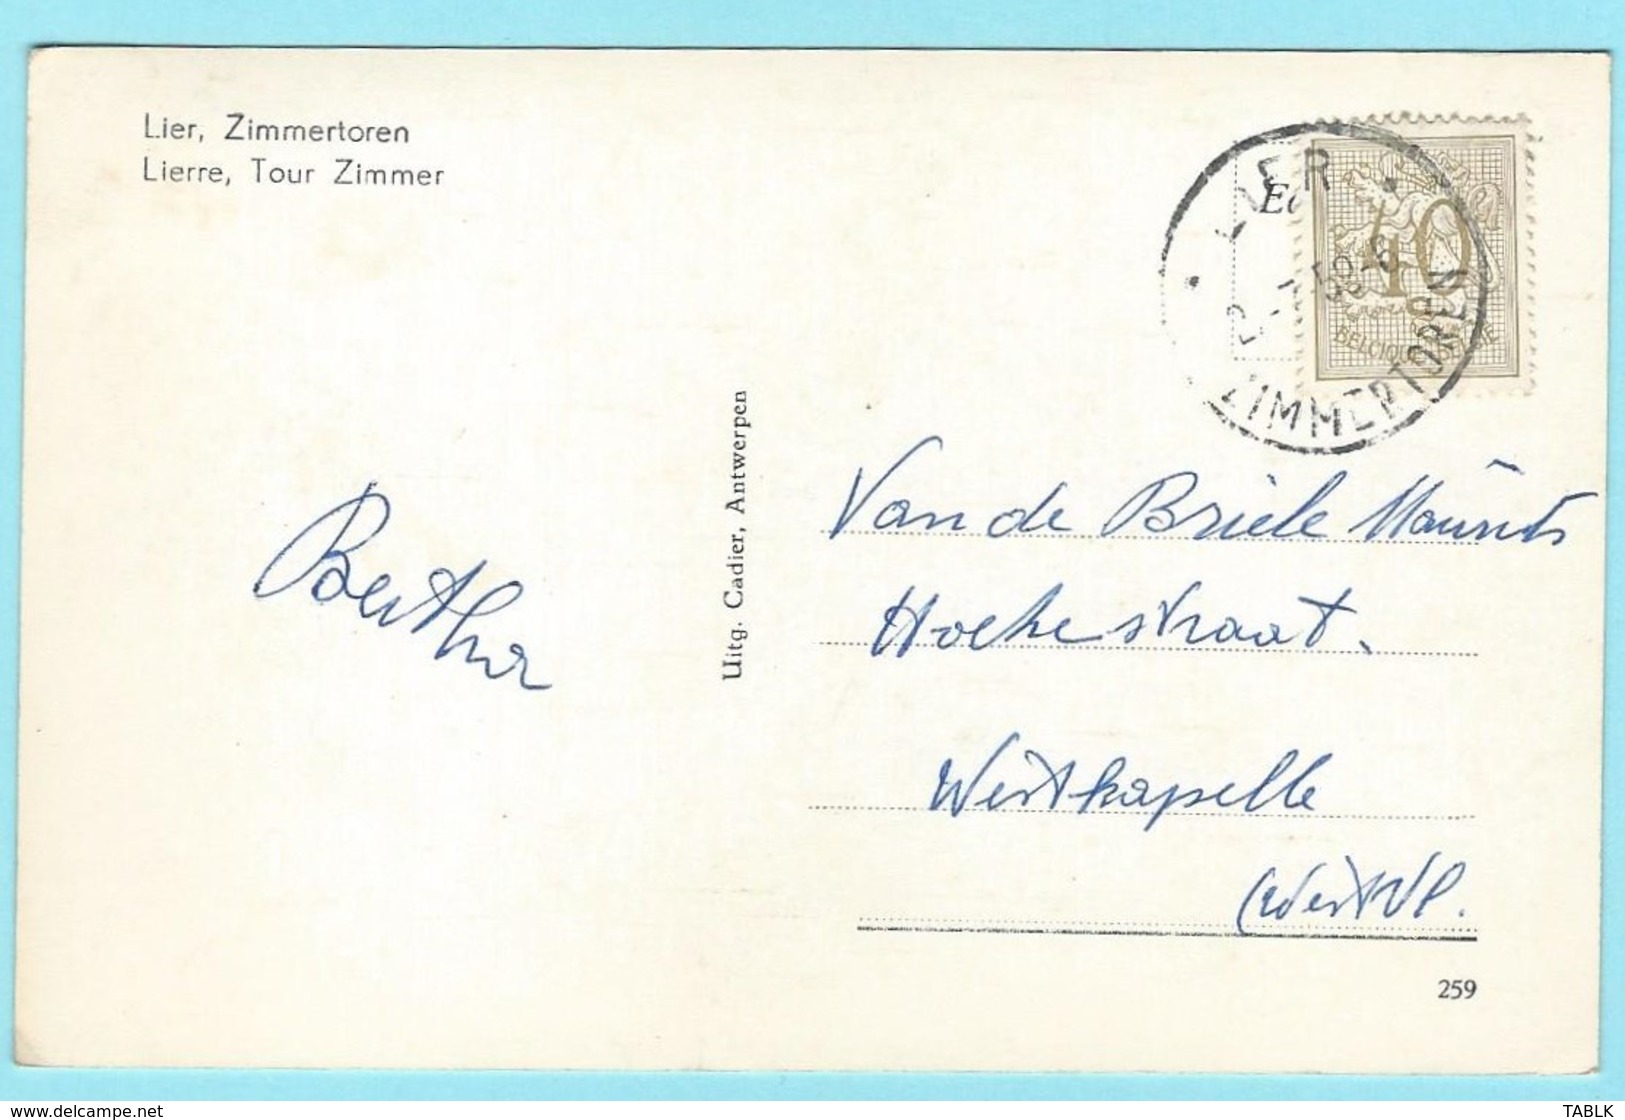 Lier, Zimmertoren
Lierre, Tour Zimmer
LIER
ZIMMERTOREN
Ed
40
BELGIQUE BELGIE
Bertha
Uitg. Cadier, Antwerpen
Van de Briele Maurits
Hoekestraat.
Westkapelle
(West Vl.
259
www.delcampe.net
TABLK